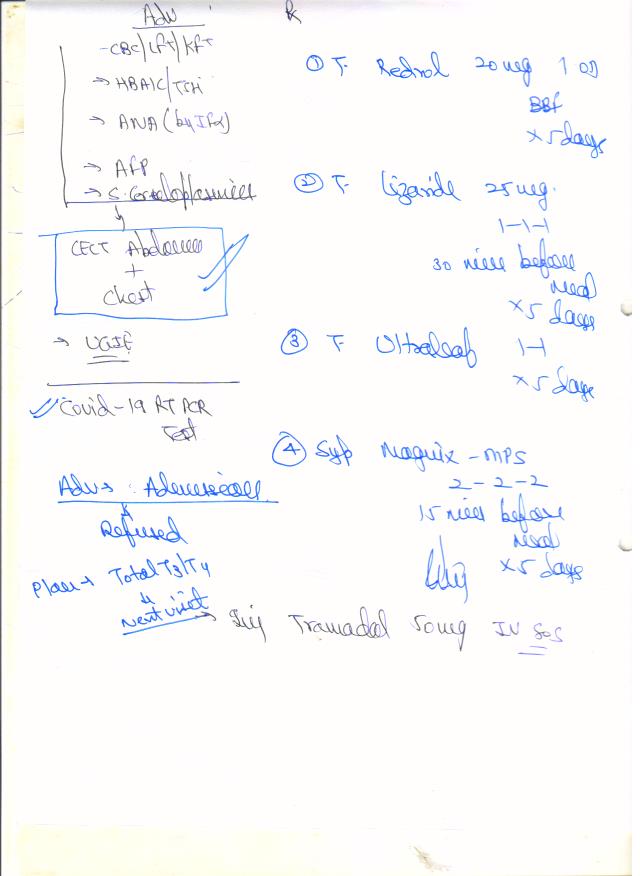 Adv
- CBC/LFT/KFT
→ HBA1C/TSH
→ ANA (by IFA)
→ AFP
→ S. Ceruloplasmin
CECT Abdomen
+
Chest
→ UGIE
Covid-19 RT PCR
Test
Adv → : Admission
Refused
Plan → Total T3/T4
Next visit
Rx
① T. 20 mg 1 OD
BBF
x 5 days
② T. 25 mg.
1-1-1
30 min before
meal
x 5 days
③ T. 1-1
x 5 days
④ Syp - MPS
2-2-2
15 min before
meal
x 5 days
→ Inj Tramadol 50mg IV SOS